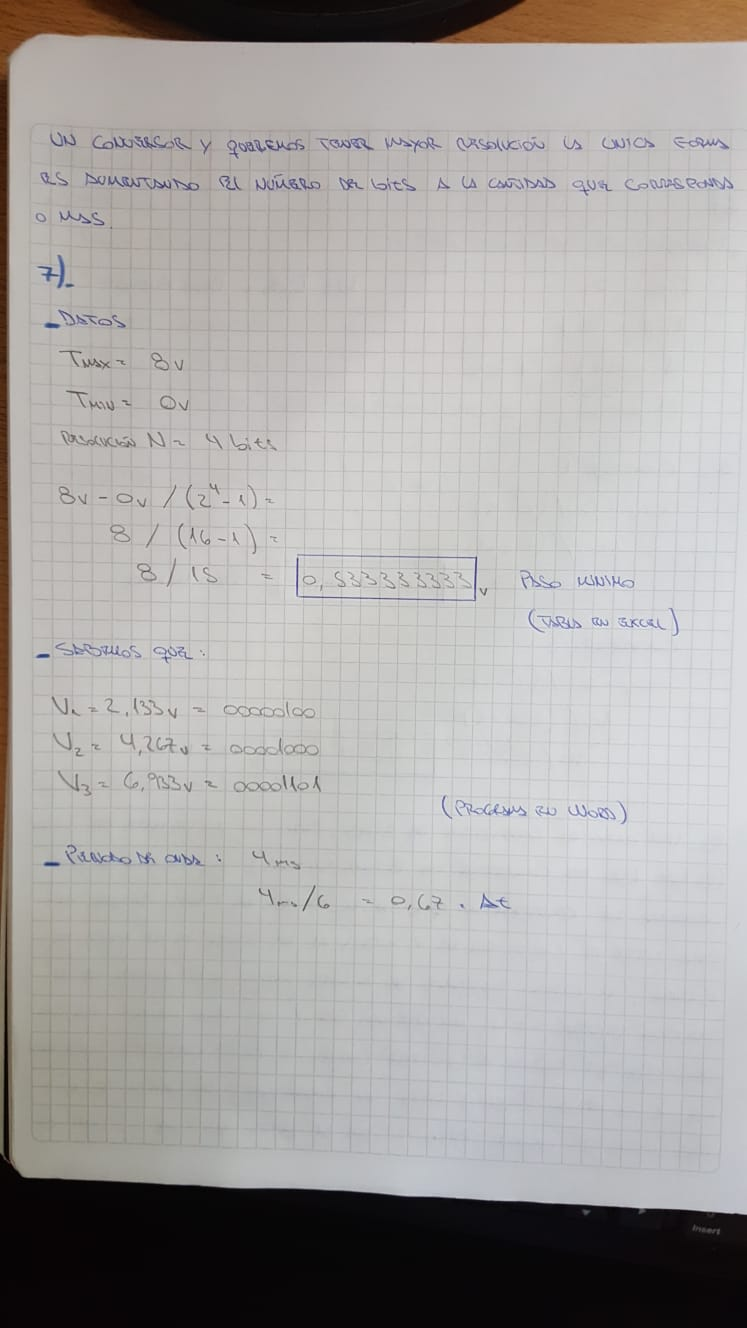 UN CONVERSOR Y QUEREMOS TENER MAYOR RESOLUCIÓN LA UNICA FORMA
ES AUMENTANDO EL NÚMERO DE bits A LA CANTIDAD QUE CORRESPONDA
O MAS.
7)_
_DATOS
TMAX = 8V
TMIN = 0V
RESOLUCIÓN N = 4 bits
8V - 0V / (2⁴ - 1) =
8 / (16 - 1) =
8 / 15 = 0,533333333 V PASO MINIMO
(TABLA EN EXCEL)
_ SABEMOS QUE:
V₁ = 2,133V = 00000100
V₂ = 4,267V = 00001000
V₃ = 6,933V = 00001101
(PROGRAMA EN WORD)
_ PERIODO DE ONDA : 4ms
4ms/6 = 0,67 . Δt
Insert